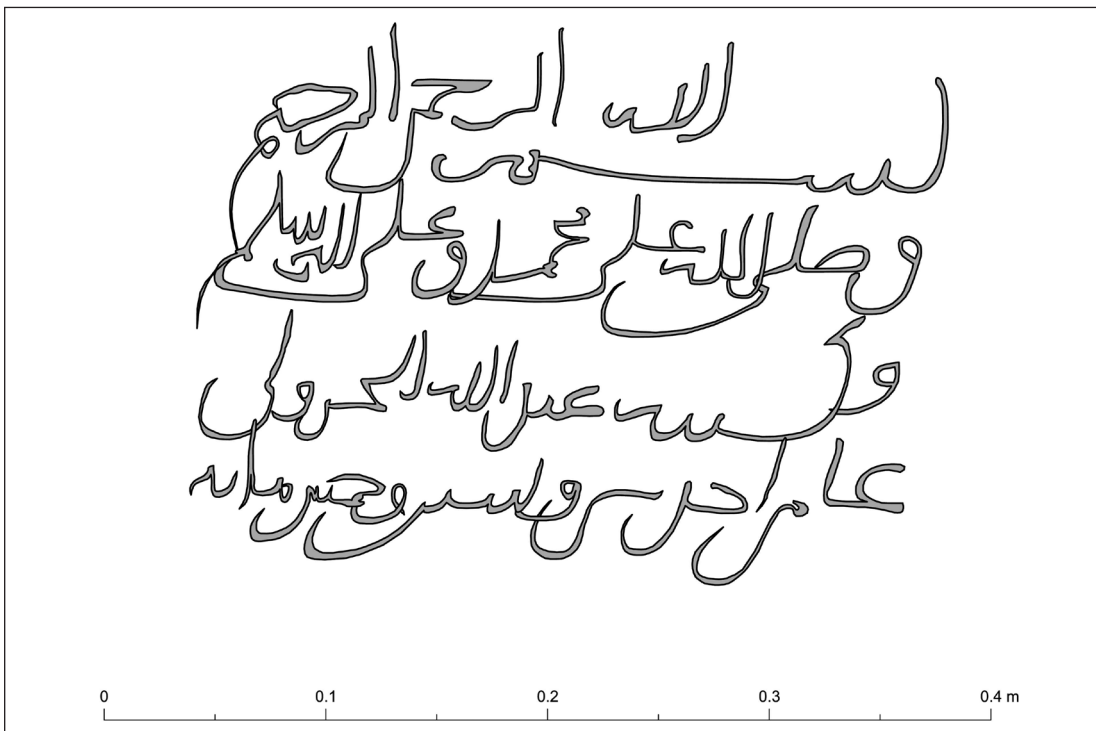 بسم الله الرحمن الرحيم
وصلى الله على محمد وعلى اله
وكتبه عبد الله
عام وستين وخمس مائه
0 0.1 0.2 0.3 0.4 m